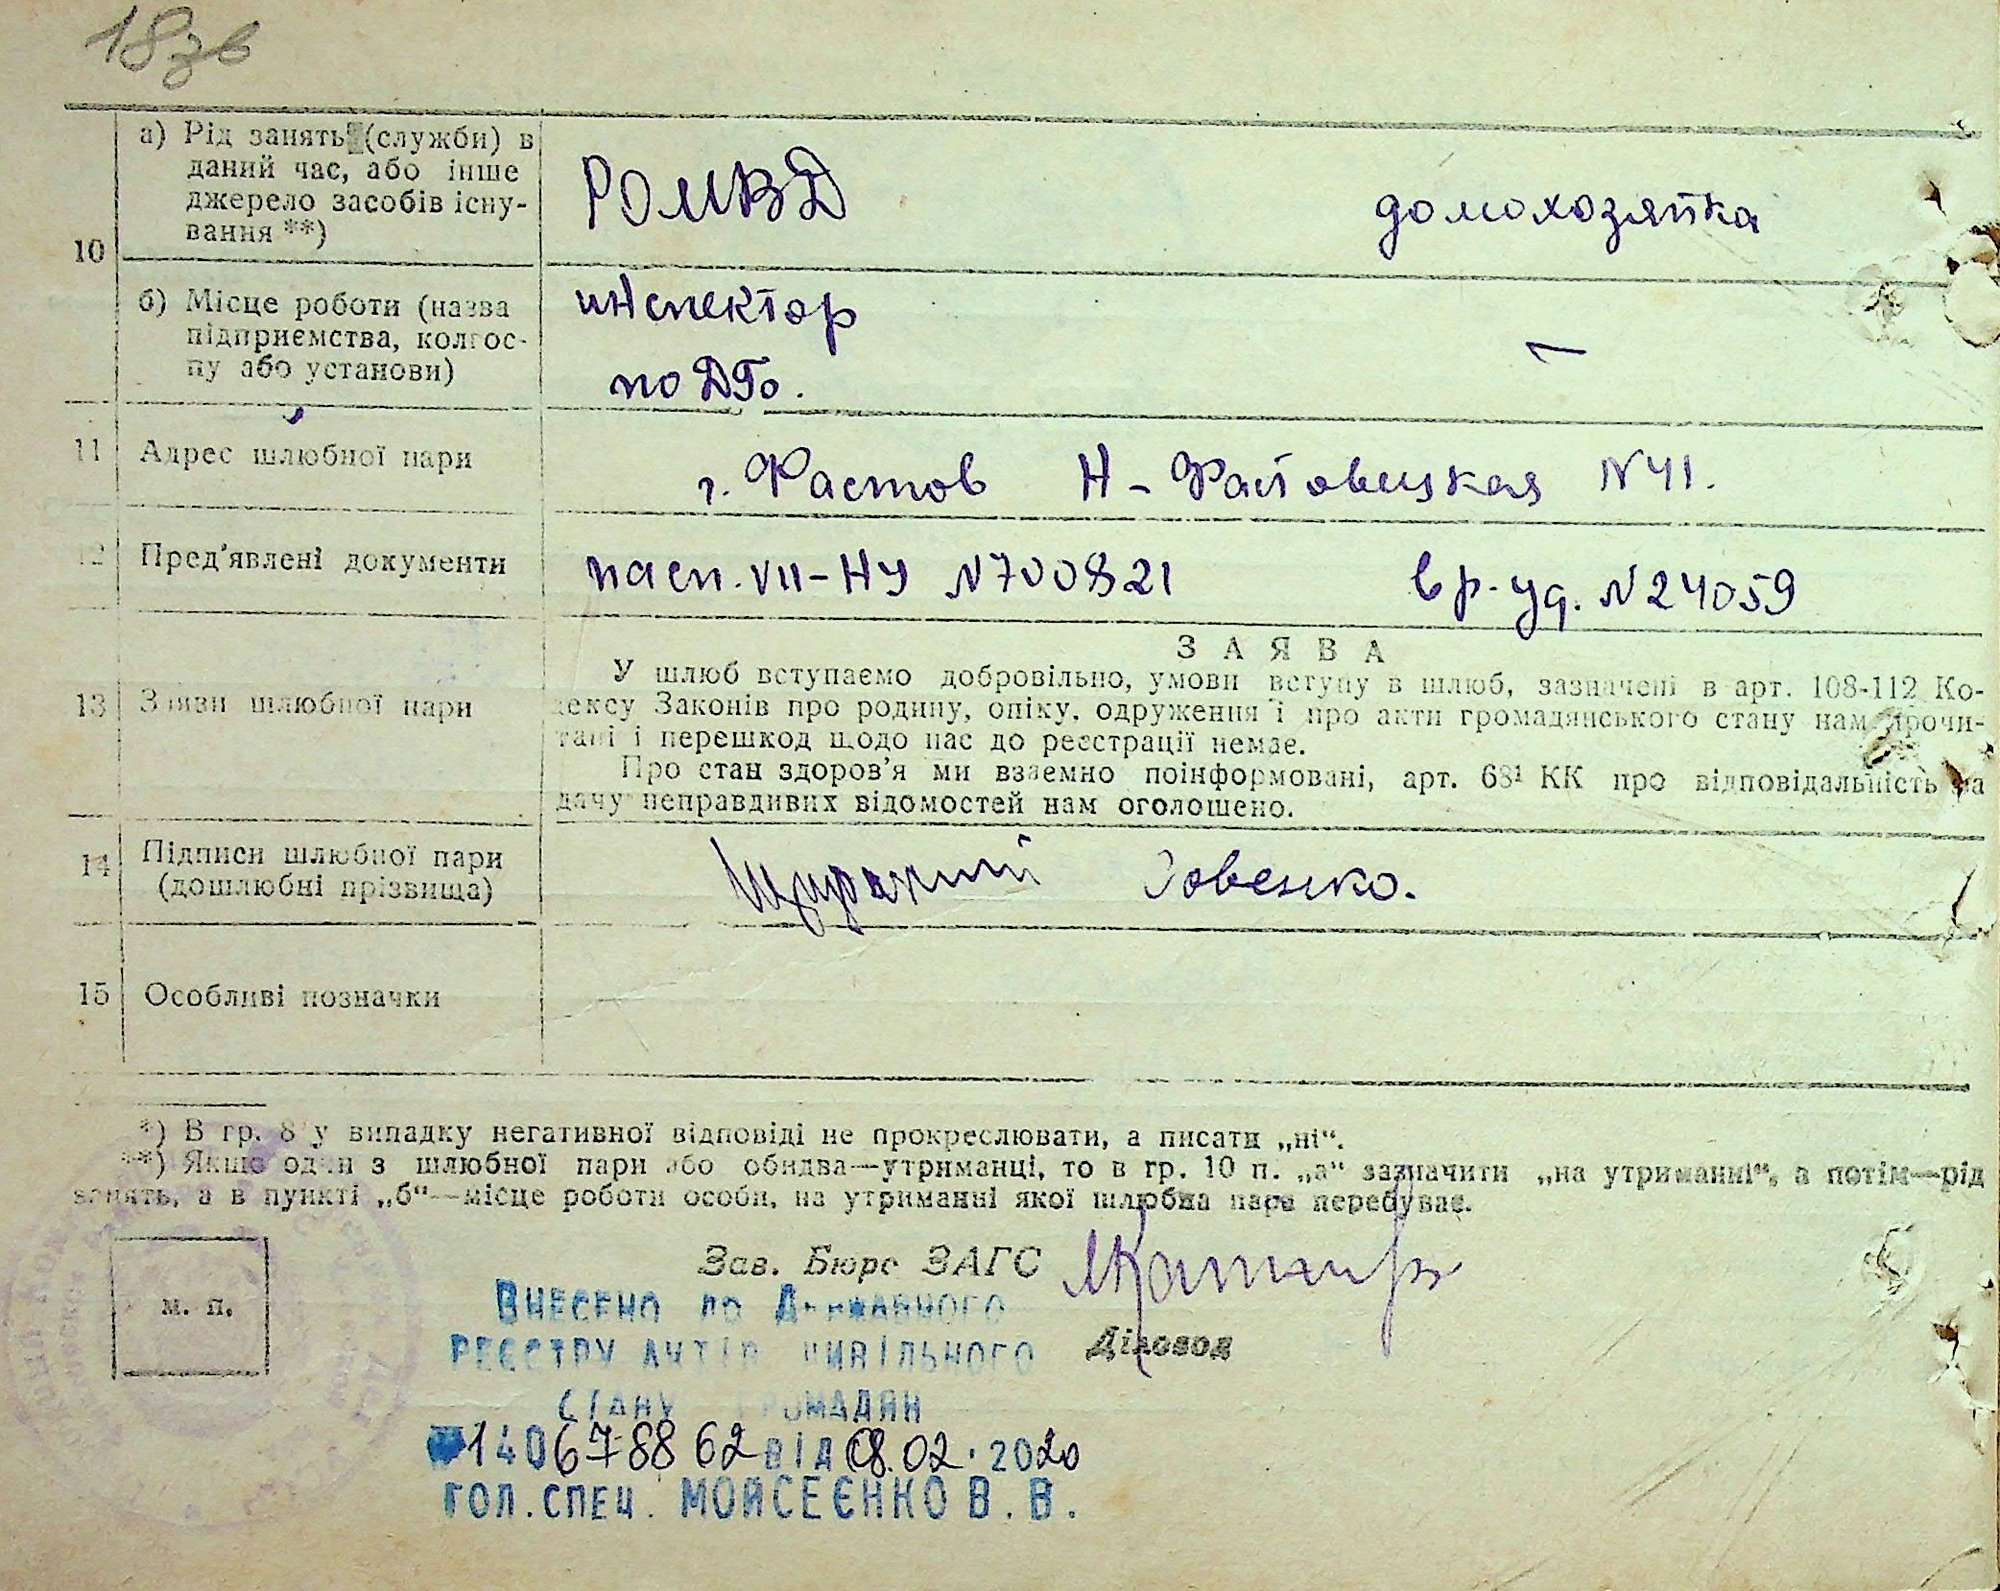 18зв
а) Рід занять (служби) в
даний час, або інше
джерело засобів існу-
вання **)
10
РОМВД
домохозяйка
б) Місце роботи (назва
підприємства, колгос-
пу або установи)
инспектор
по ДГо.
—
11
Адрес шлюбної пари
г. Фастов Н-Фастовецкая N 41.
12
Пред'явлені документи
пасп. VII-НУ N 700821
вр. уд. N 24059
13
Заяви шлюбної пари
ЗАЯВА
У шлюб вступаємо добровільно, умови вступу в шлюб, зазначені в арт. 108-112 Ко-
дексу Законів про родину, опіку, одруження і про акти громадянського стану нам прочи-
тані і перешкод щодо нас до реєстрації немає.
Про стан здоров'я ми взаємно поінформовані, арт. 68¹ КК про відповідальність за
дачу неправдивих відомостей нам оголошено.
14
Підписи шлюбної пари
(дошлюбні прізвища)
15
Особливі позначки
*) В гр. 8 у випадку негативної відповіді не прокреслювати, а писати „ні“.
**) Якщо один з шлюбної пари або обидва—утриманці, то в гр. 10 п. „а“ зазначити „на утриманні“, а потім—рід
занять, а в пункті „б“—місце роботи особи, на утриманні якої шлюбна пара перебуває.
Зав. Бюро ЗАГС
м. п.
Діловод
ВНЕСЕНО ДО ДЕРЖАВНОГО
РЕЄСТРУ АКТІВ ЦИВІЛЬНОГО
СТАНУ ГРОМАДЯН
№ 140678862 від 08.02.2020
ГОЛ. СПЕЦ. МОЙСЕЄНКО В. В.